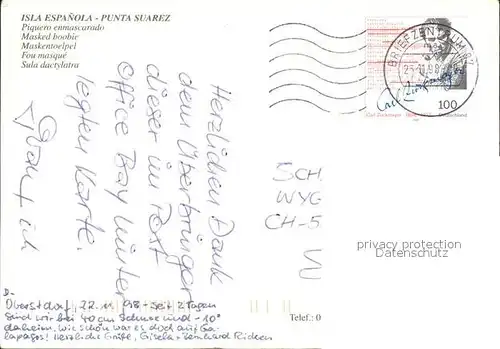 ISLA ESPAÑOLA - PUNTA SUAREZ
Piquero enmascarado
Masked boobie
Maskentoelpel
Fou masqué
Sula dactylatra
BRIEFZENTRUM 87
100
Carl Zuckmayer Deutschland
Herzlichen Dank
dem Überbringer
dieser in Post
Office Bay hinter
legten Karte.
SCH
WYG
CH-5
privacy protection
VVVDB.com
D-
Oberstdorf, 22.11.98 - seit 2 Tagen
sind wir bei 40 cm Schnee und -10°
daheim, wie schön war es doch auf Ga-
lapagos! Herzliche Grüße, Gisela +
Telef.: 0